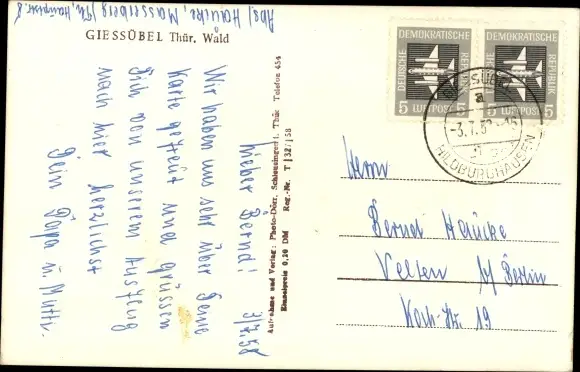 Abs. Haücke, Masserberg/Th., Hauptstr. 8
GIESSÜBEL Thür. Wald
3/7.58
Lieber Bernd!
Wir haben uns sehr über Deine
Karte gefreut und grüssen
Dich von unserem Ausflug
nach hier herzlichst
Dein Papa u. Mutti.
Aufnahme und Verlag: Photo-Dörr, Schleusingen i. Thür. Telefon 454
Einzelpreis 0,20 DM Reg.-Nr. T 132/58
DEUTSCHE
DEMOKRATISCHE
REPUBLIK
5 LUFTPOST 5
DEUTSCHE
DEMOKRATISCHE
REPUBLIK
5 LUFTPOST 5
a
-3.7.58
HILDBURGHAUSEN
Herrn
Bernd Haücke
Velten b/Berlin
Koch-Str. 19